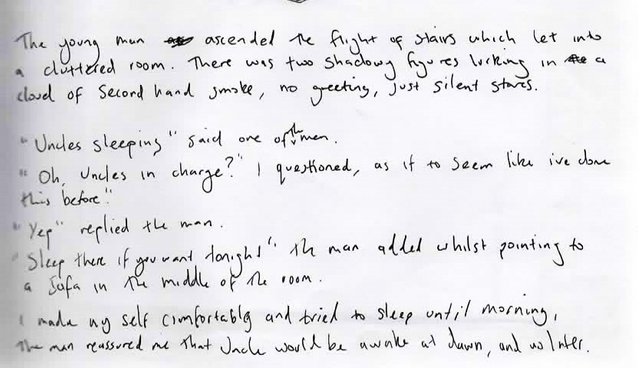 The young man ascended the flight of stairs which let into
a cluttered room. There was two shadowy figures lurking in a
cloud of second hand smoke, no greeting, just silent stares.
"Uncles sleeping" said one of the men.
"Oh, Uncles in charge?" I questioned, as if to seem like ive done
this before."
"Yep" replied the man.
"Sleep there if you want tonight" the man added whilst pointing to
a sofa in the middle of the room.
I made my self comfortably and tried to sleep until morning,
the man reassured me that Uncle would be awake at dawn, and no later.